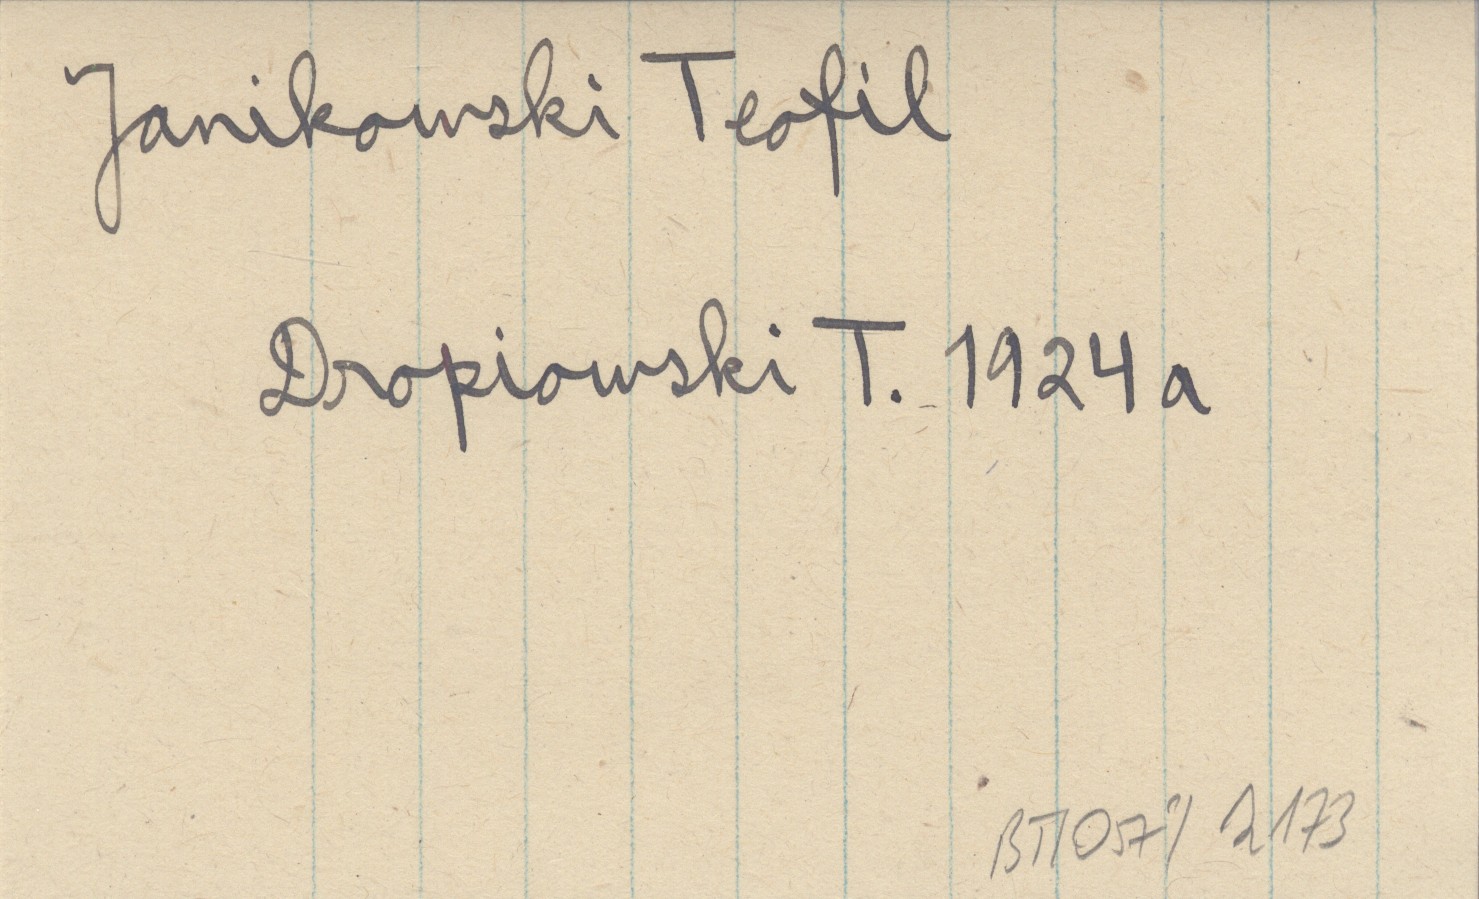 Janikowski Teofil
Dropiowski T. 1924a
2173